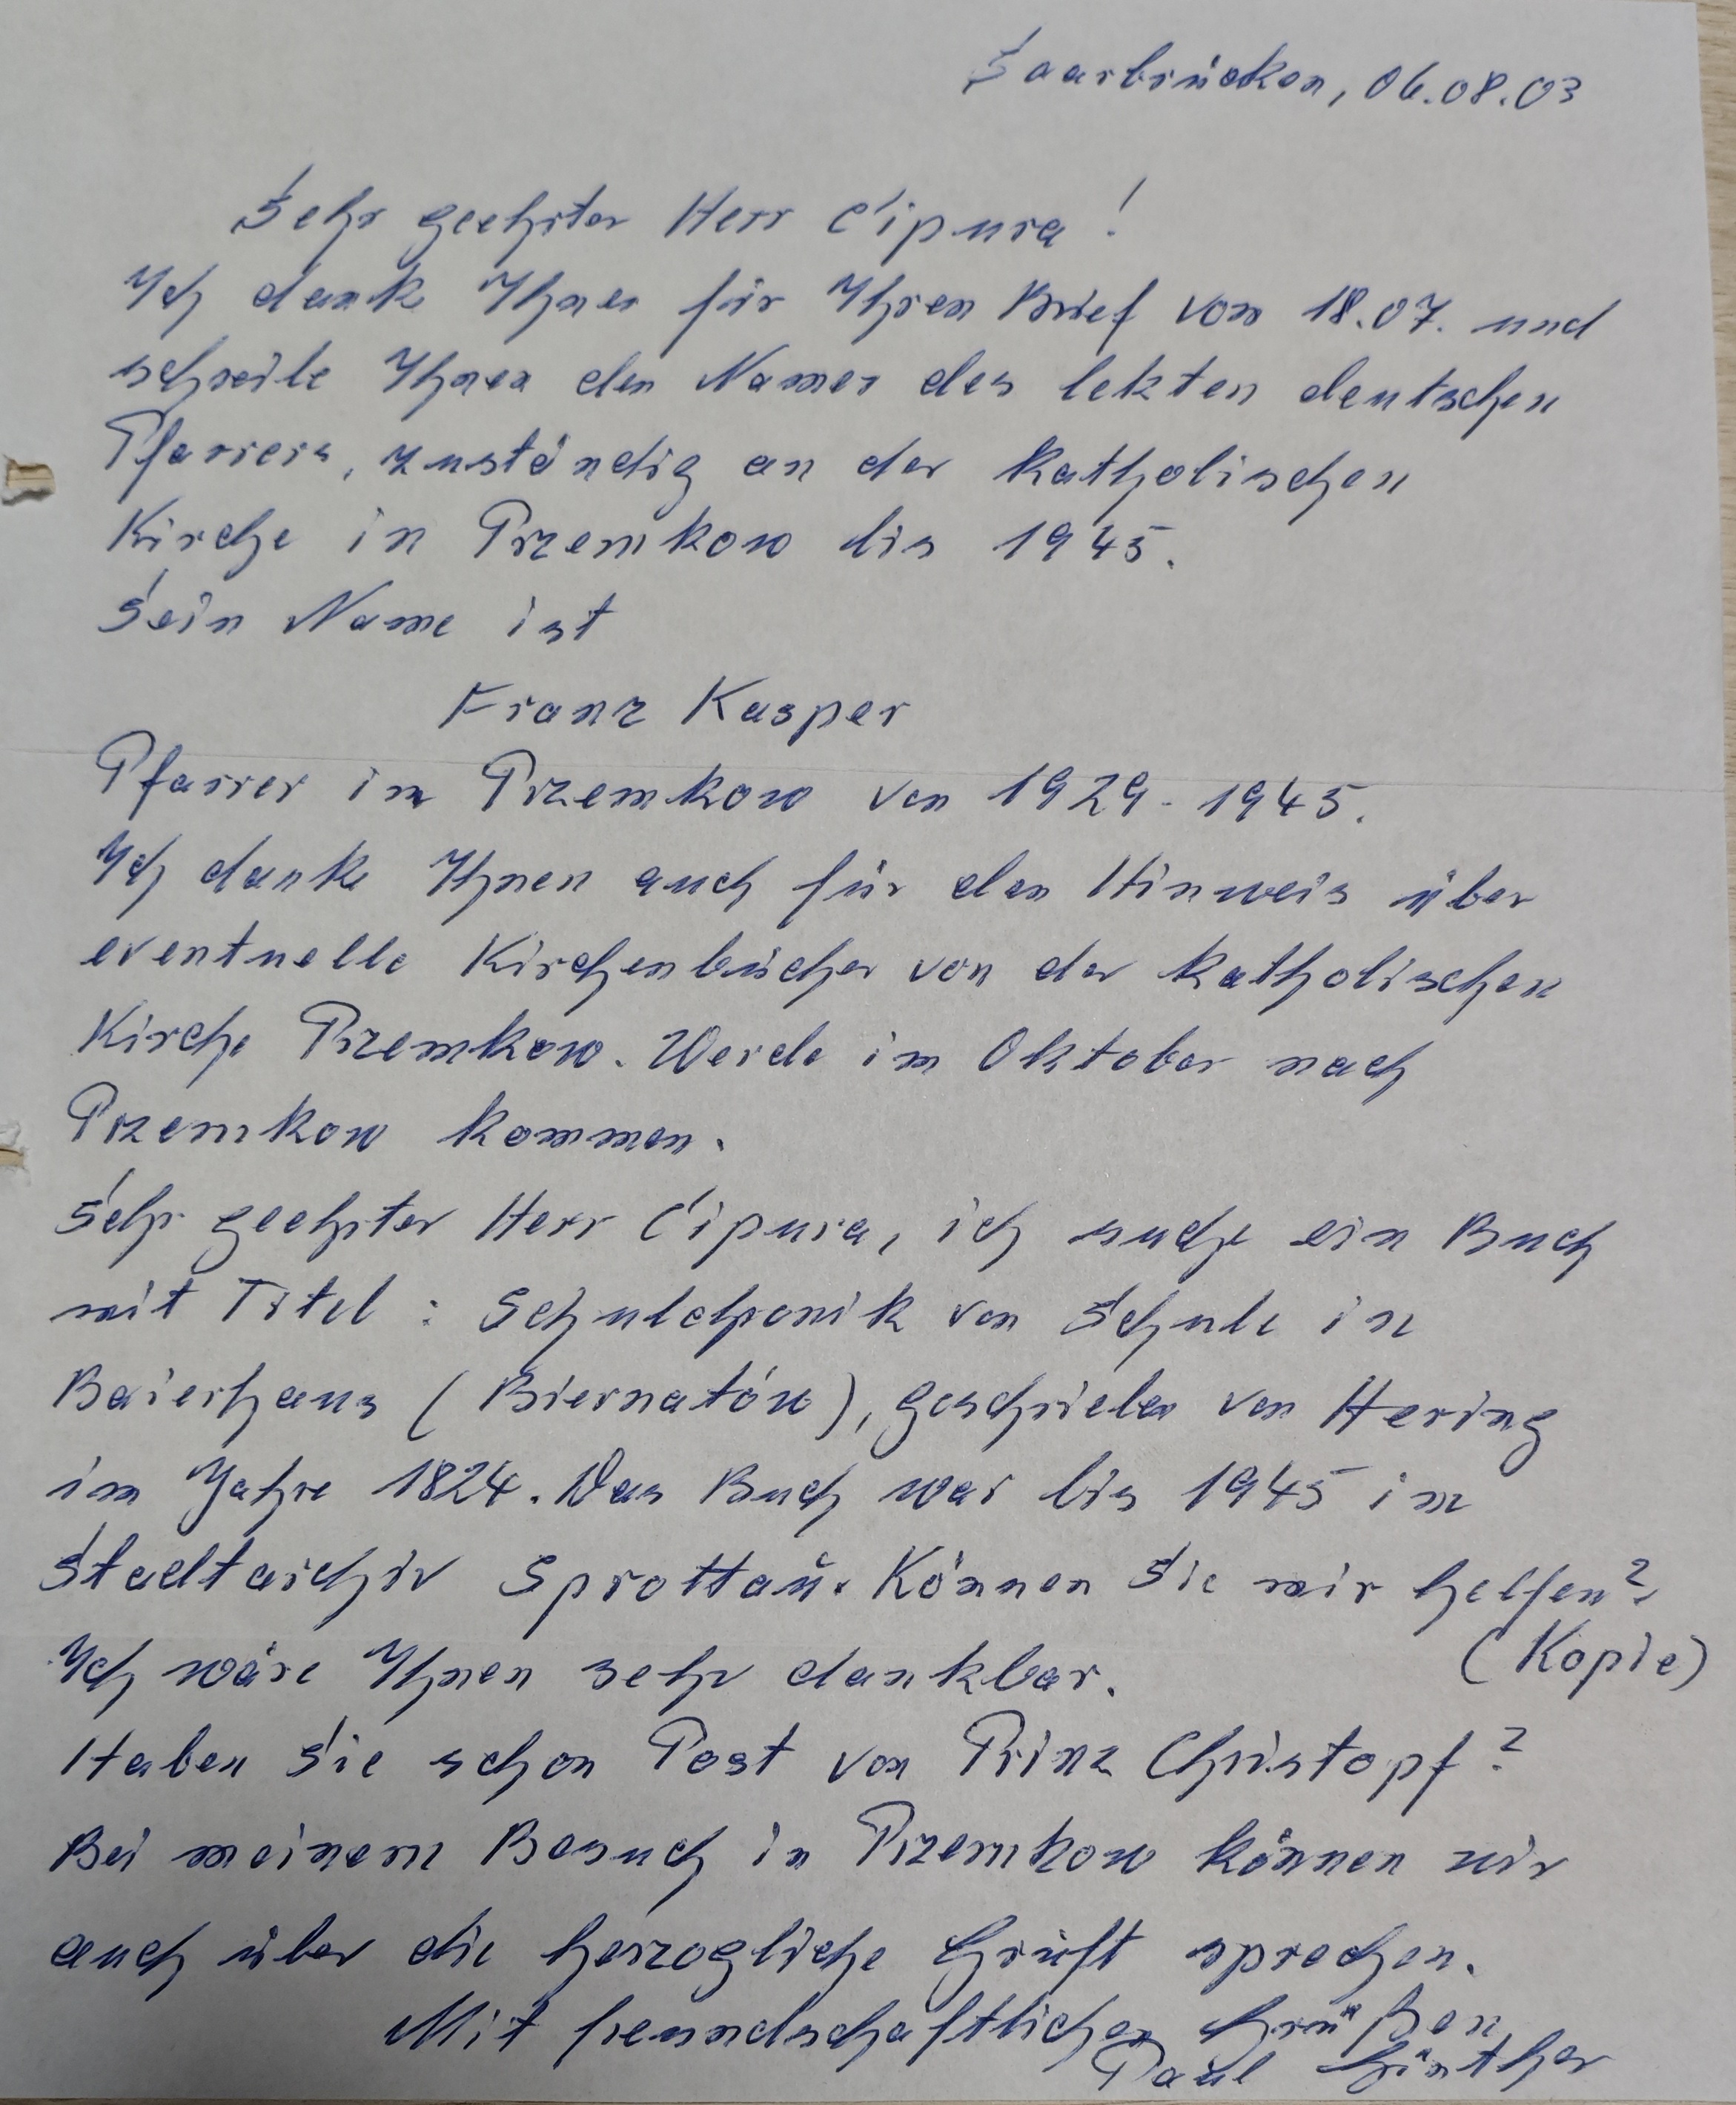 Saarbrücken, 06.08.03
Sehr geehrter Herr Cipura!
Ich dank Ihnen für Ihren Brief vom 18.07. und
schreibe Ihnen den Namen des lekten deutschen
Pfarrers, zuständig an der katholischen
Kirche in Przemkow bis 1945.
Sein Name ist
Franz Kasper
Pfarrer in Przemkow von 1929-1945.
Ich danke Ihnen auch für den Hinweis über
eventuelle Kirchenbücher von der katholischen
Kirche Przemkow. Werde im Oktober nach
Przemkow kommen.
Sehr geehrter Herr Cipura, ich suche ein Buch
mit Titel: Schulchronik von Schule in
Baierhaus (Biernatów), geschrieben von Hering
im Jahre 1824. Das Buch war bis 1945 im
Stadtarchiv Sprottau. Können Sie mir helfen?
(Kopie)
Ich wäre Ihnen sehr dankbar.
Haben Sie schon Post von Prinz Christopf?
Bei meinem Besuch in Przemkow können wir
auch über die herzogliche Gruft sprechen.
Mit freundschaftlichen Grüßen
Paul Günther